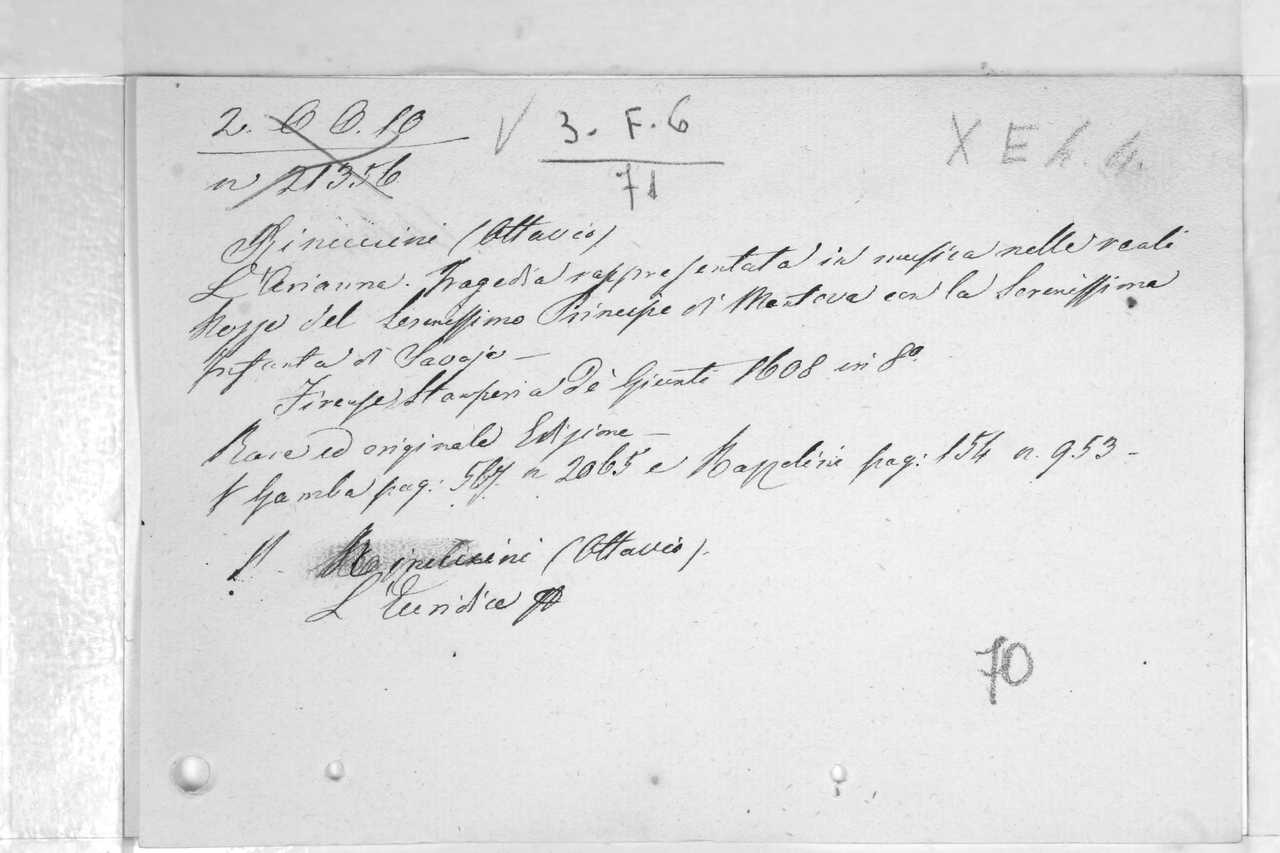 2. O O. 10
n 21356
V 3. F. 6
71
X E 4. 4.
Rinuccini (Ottavio)
L'Arianna. Tragedia rappresentata in musica nelle reali
Nozze del Serenissimo Principe di Mantova con la Serenissima
Infanta di Savoja —
Firenze, Stamperia de' Giunti 1608 in 8º
Rara ed originale Edizione —
V Gamba pag: 567 n 2065 e pag: 154 n. 953 –
Rinuccini (Ottavio).
L'Euridice
70